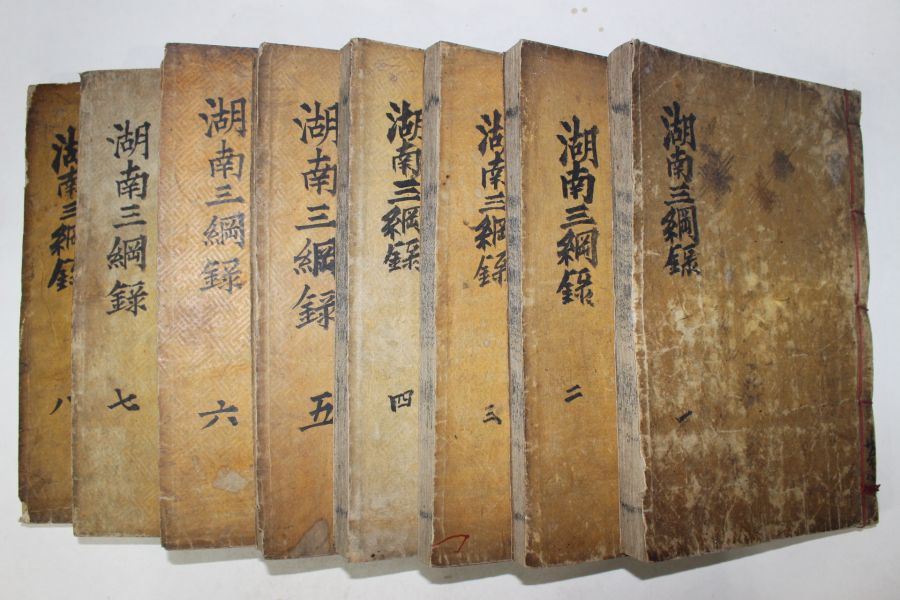 湖南三綱錄
一
湖南三綱錄
二
湖南三綱錄
三
湖南三綱錄
四
湖南三綱錄
五
湖南三綱錄
六
湖南三綱錄
七
湖南三綱錄
八